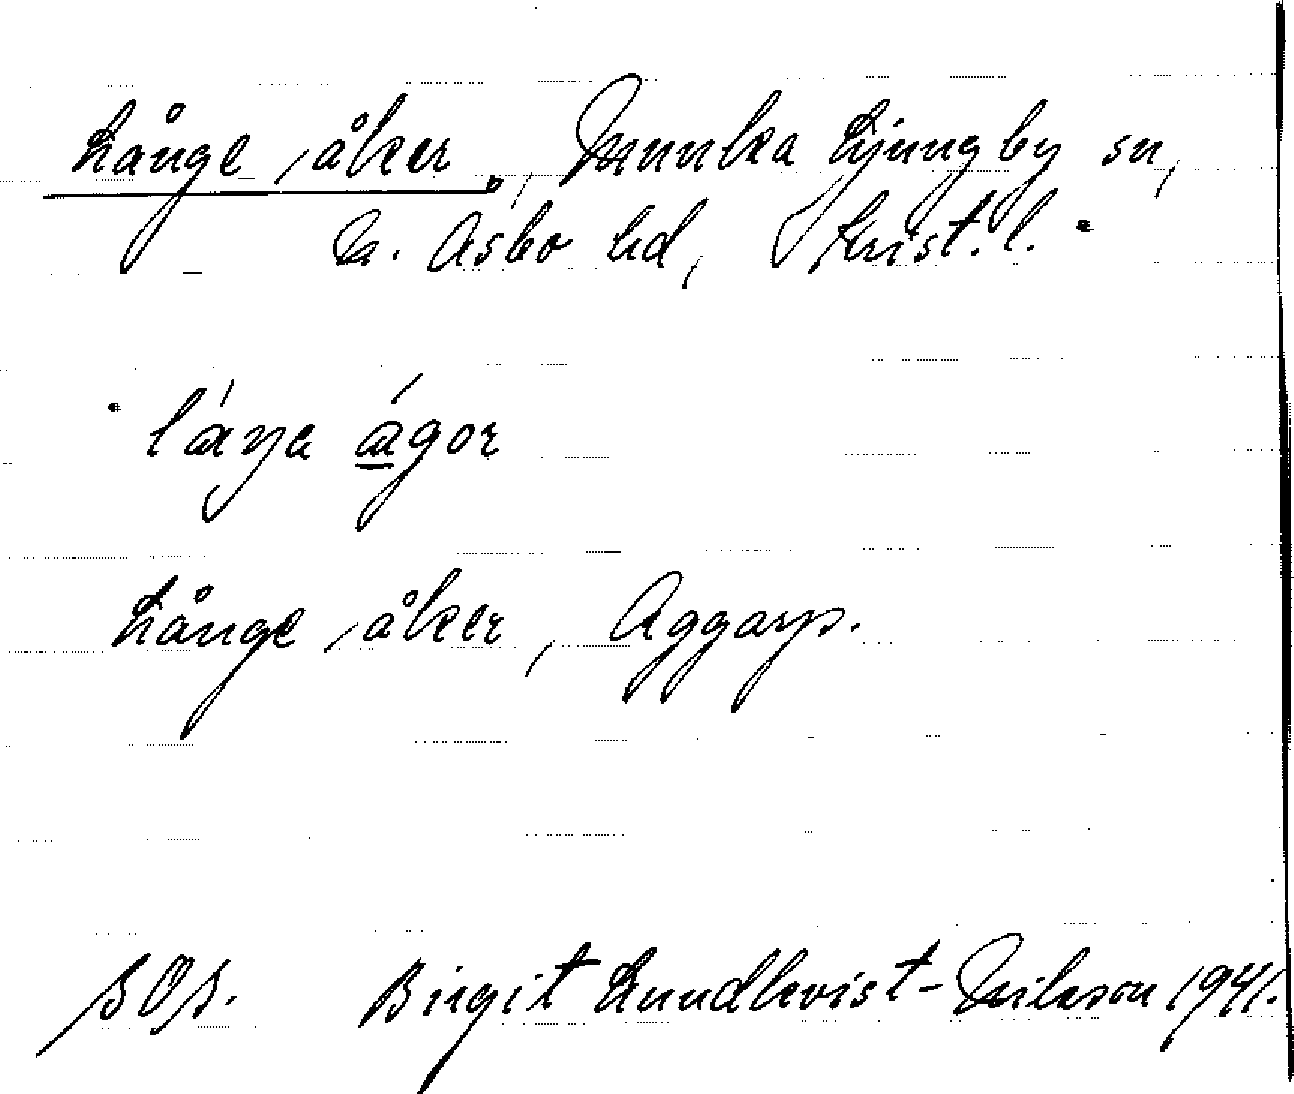 Långe, åker, Munka Ljungby sn,
N. Åsbo hd, Krist. l.
láŋa ágor
Långe, åker, Aggarp.
Birgit Lundkvist-Nilsson 1941.